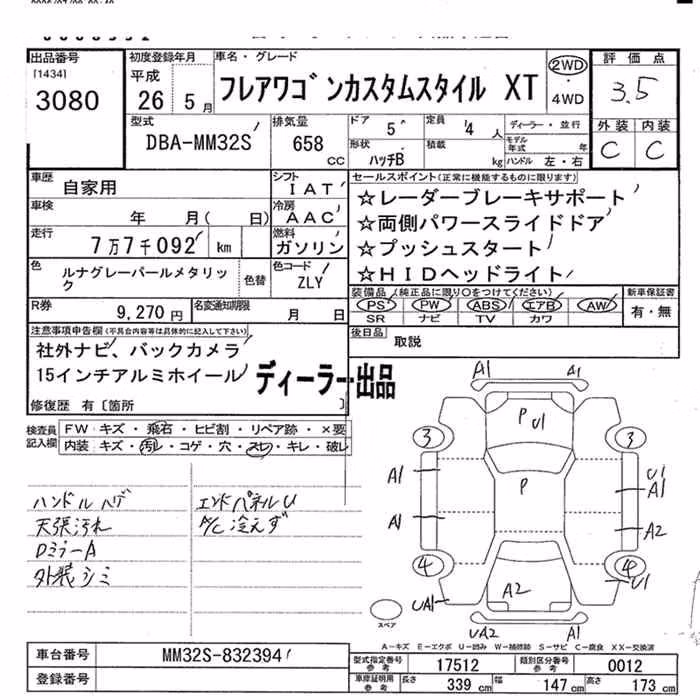 出品番号
[1434]
3080
初度登録年月
平成
26 5 月
車名・グレード
フレアワゴンカスタムスタイル XT
2WD
・
4WD
評価点
3.5
外装 内装
C C
型式
DBA-MM32S
排気量
658
CC
ドア
5
定員
4 人
ディーラー・並行
形状
ハッチB
積載
kg
モデル年式
年
ハンドル 左・右
車歴
自家用
シフト
IAT
車検
年 月( 日)
冷房
AAC
走行
7万7千092 km
燃料
ガソリン
色
ルナグレーパールメタリック
色替
色コード
ZLY
R券
9,270 円
名変通知期限
月 日
セールスポイント(正常に機能するものに限ります)
☆レーダーブレーキサポート
☆両側パワースライドドア
☆プッシュスタート
☆HIDヘッドライト
装備品(純正品に限り○をつけてください)
PS PW ABS エアB AW
SR ナビ TV カワ
新車保証書
有・無
後日品
取説
注意事項申告欄(不具合内容等は具体的に記入して下さい)
社外ナビ、バックカメラ
15インチアルミホイール
ディーラー出品
修復歴 有〔箇所 〕
検査員
記入欄
FW:キズ・飛石・ヒビ割・リペア跡・×要
内装:キズ・汚レ・コゲ・穴・スレ・キレ・破レ
ハンドルハゲ
天張汚れ
DミラーA
外装シミ
エンドパネルU
A/C冷えず
A1 A1
P U1
3 3
P
A1 U1
A1
A1 A2
4 4
U1
A2
UA1
UA2 A1
スペア
A-キズ E-エクボ U-凹み W-補修跡 S-サビ C-腐食 XX-交換済
車台番号
MM32S-832394
登録番号
型式指定番号
参考
17512
類別区分番号
参考
0012
車庫証明用
参考
長さ 339 cm 幅 147 cm 高さ 173 cm